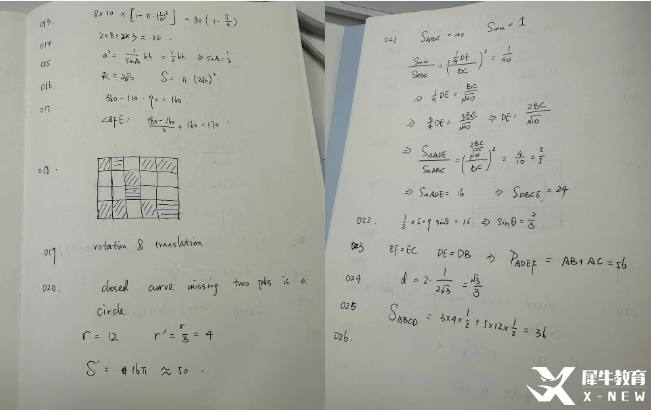 013. 8×10 × [1-π·(½)²] = 80(1-π/4)
014 2×8+2×3=22.
015 a² = 1/sinA bh = ½bh ⇒ sinA=½
016 R=2√3 S= π·(2√3)².
017. 360-110-90=160.
∠AFE: (180-160)/2 + 160 = 170.
018.
019. rotation & translation
020. closed curve missing two pts is a
circle.
r=12 r'=r/3=4
S'= 16π ≈ 50.
021 S_ABC = 40 S_min = 1
S_min/S_ABC = (¼DE/BC)² = 1/40
⇒ ¼DE = BC/√40
⇒ DE = 2BC/√10
⇒ S_ADE/S_ABC = (2BC/√10/BC)² = 4/10 = 2/5
⇒ S_ADE = 16 ⇒ S_DBCE = 24
022. ½×5×9 sinθ = 15 ⇒ sinθ = 2/3
023 EF=EC DE=DB ⇒ P_ADEF = AB+AC=56
024 d = 2·1/2√3 = √3/3
025 S_ABCD = 3×4×½ + 5×12×½ = 36
026.
犀牛教育
X-NEW